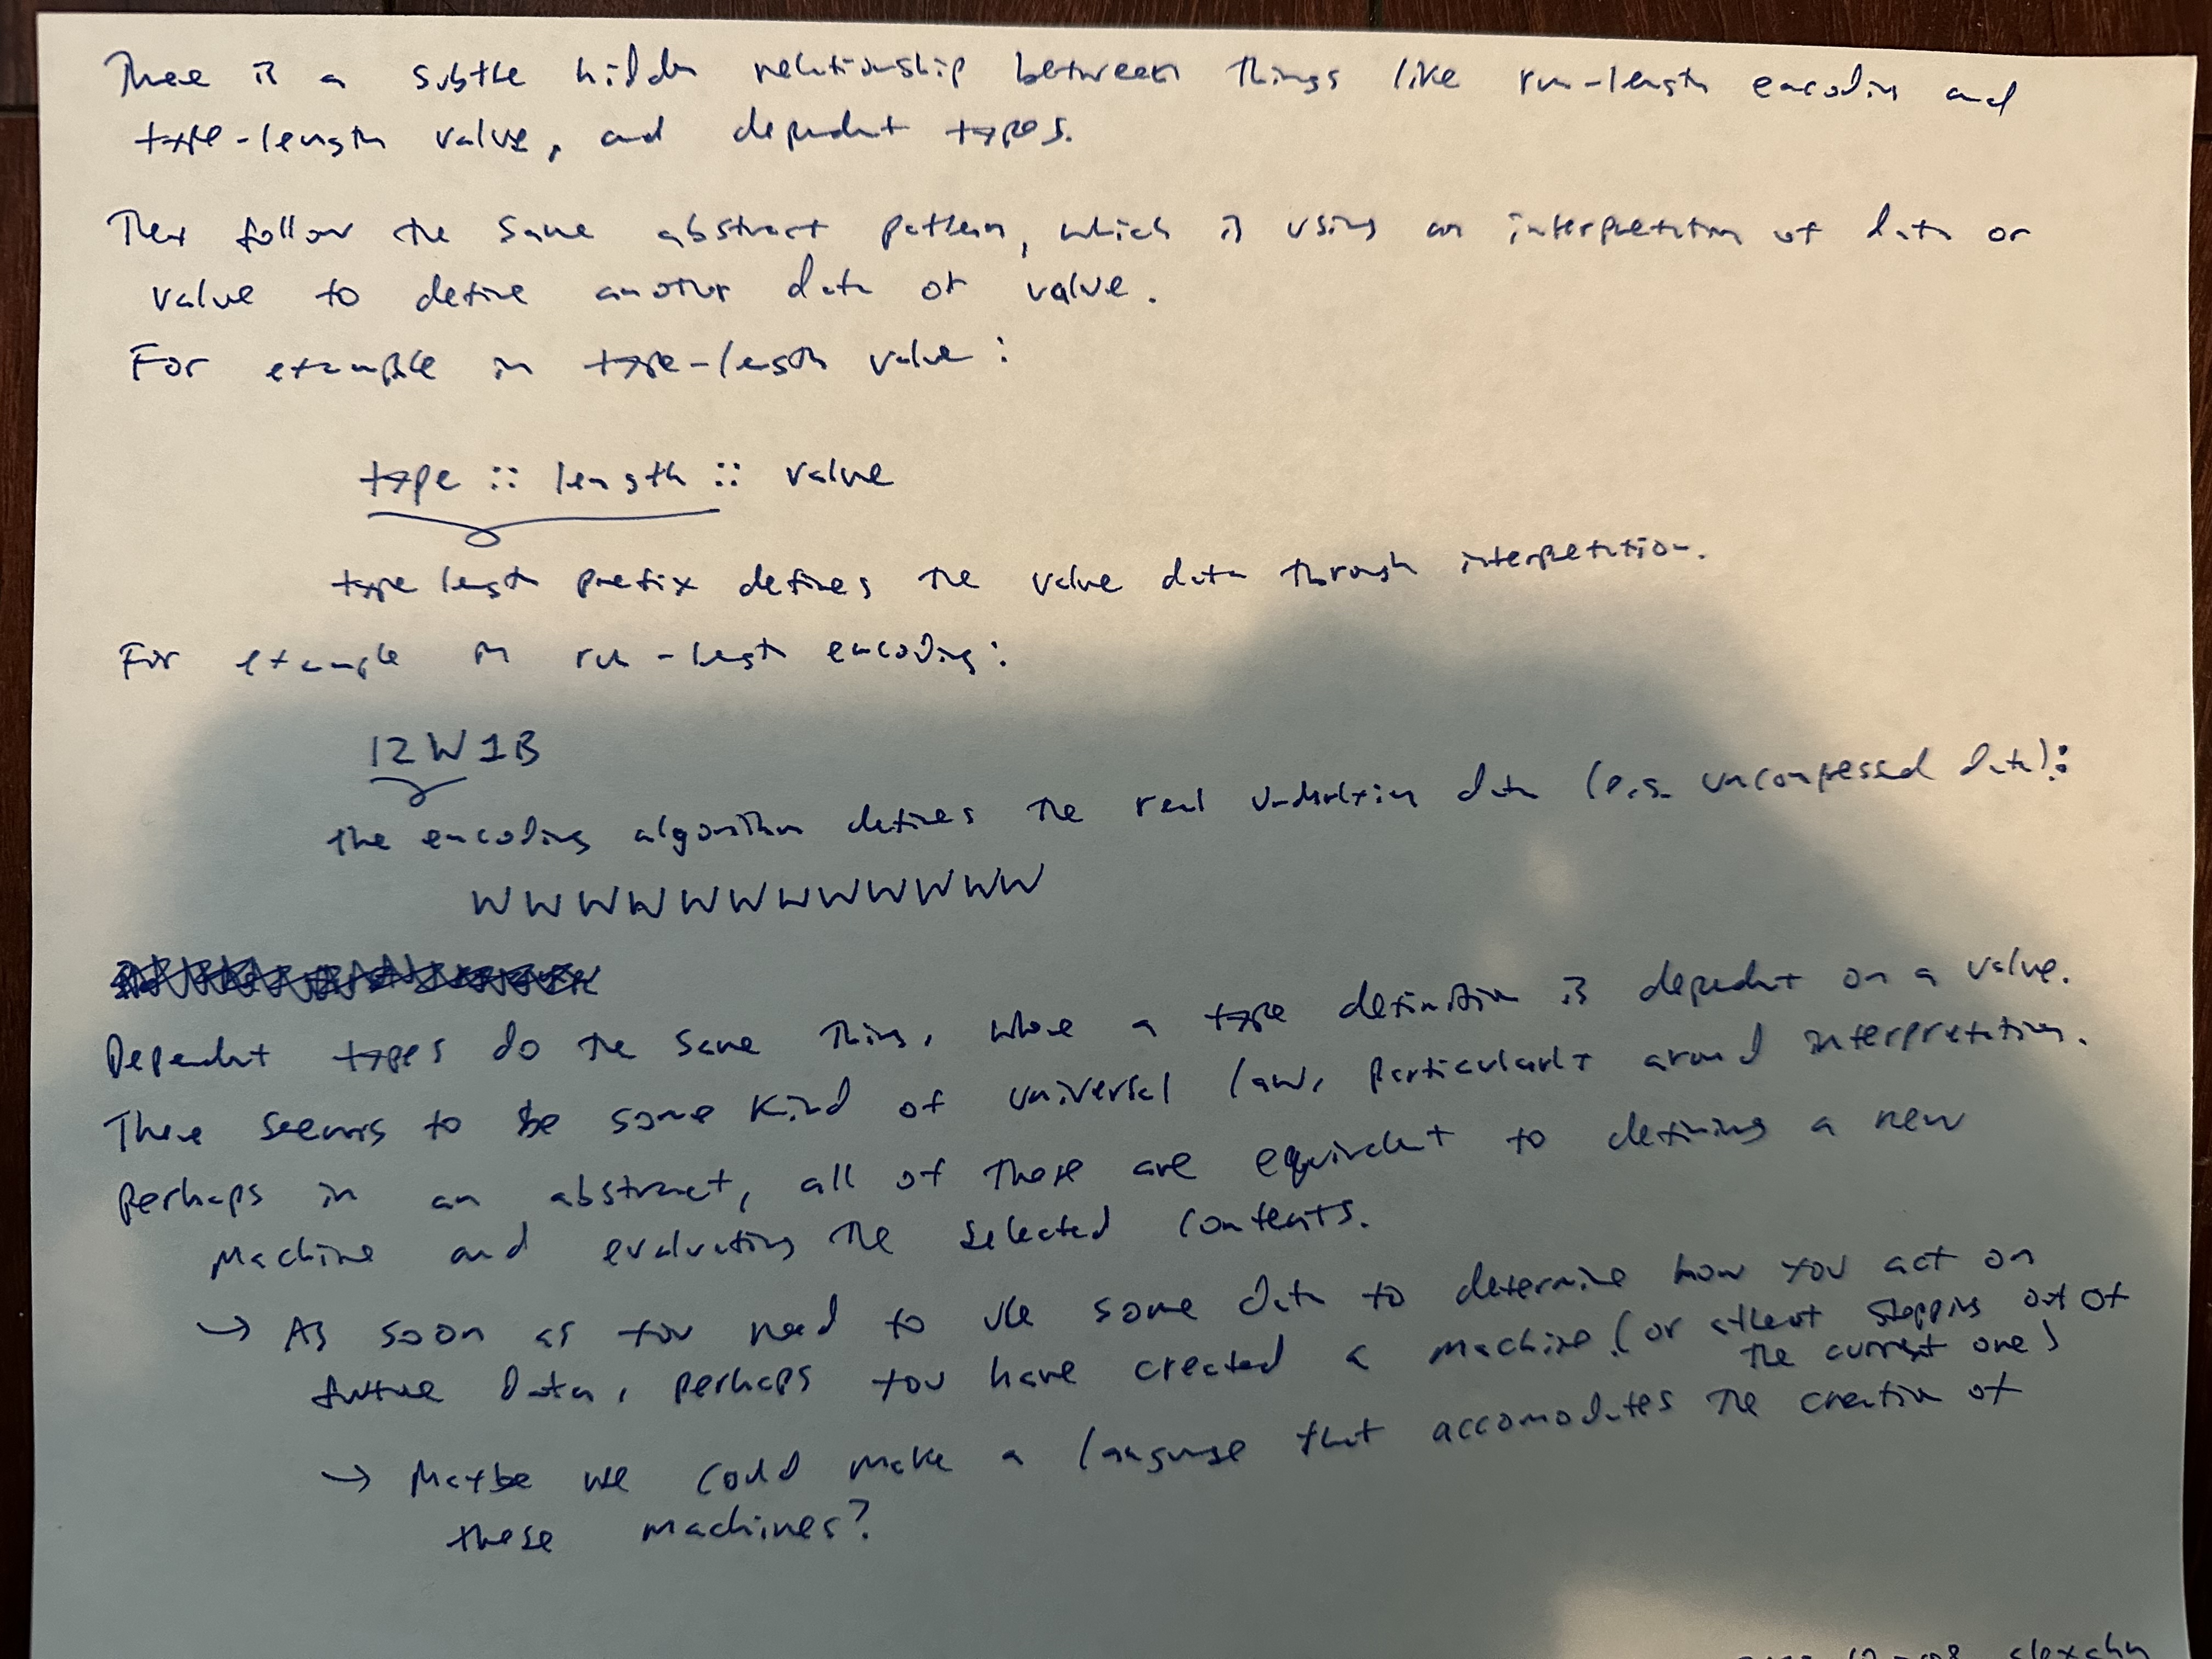 There is a subtle hidden relationship between things like run-length encoding and
type-length value, and dependent types.
They follow the same abstract pattern, which is using an interpretation of data or
value to define another data or value.
For example in type-length value:
type :: length :: value
type length prefix defines the value data through interpretation.
For example in run-length encoding:
12W1B
the encoding algorithm defines the real underlying data (e.g. uncompressed data):
WWWWWWWWWWWW
Dependent types do the same thing, where a type definition is dependent on a value.
There seems to be some kind of universal law, particularly around interpretation.
Perhaps in an abstract, all of these are equivalent to defining a new
machine and evaluating the selected contents.
→ As soon as you need to use some data to determine how you act on
future data, perhaps you have created a machine. (or atleast stepping out of
the current one)
→ Maybe we could make a language that accomodates the creation of
these machines?